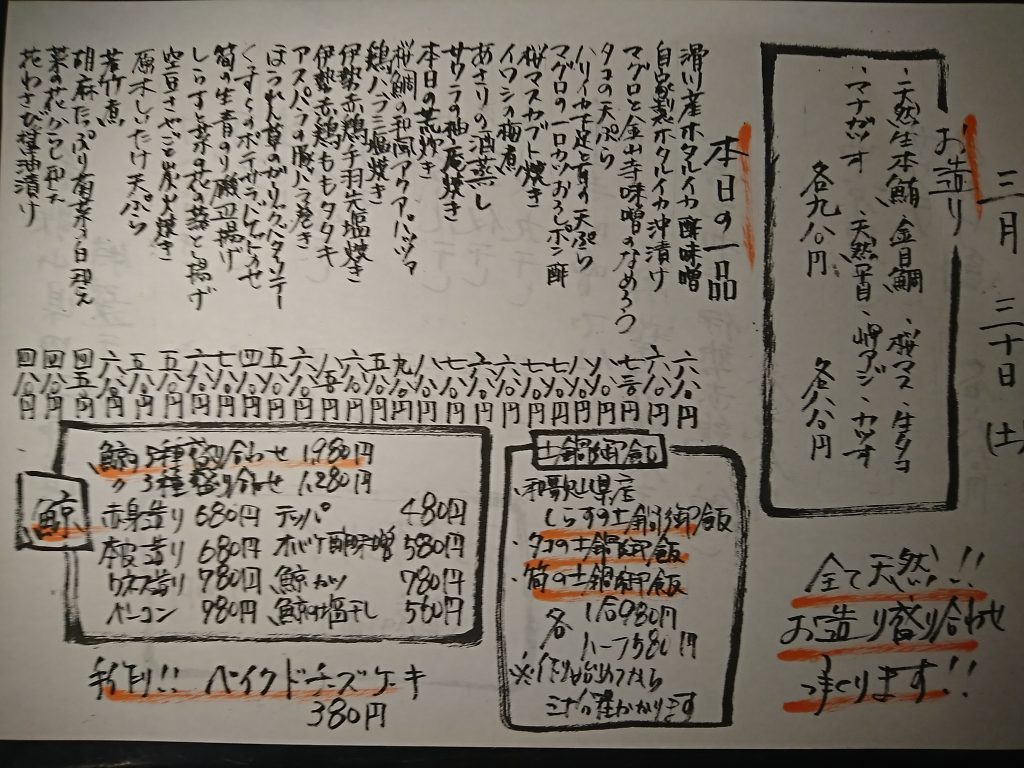 三月 三十日 (土)
お造り
・天然生本鮪、金目鯛、桜マス、生タコ
各九八〇円
・マナガツオ、天然平目、岬アジ、カツオ
各八八〇円
全て天然!!
お造り盛り合わせ
つくります!!
本日の一品
滑川産ホタルイカ酢味噌 六八〇円
自家製ホタルイカ沖漬け 六八〇円
マグロと金山寺味噌のなめろう
タコの天ぷら
ハリイカ下足と筍の天ぷら
マグロの一口カツおろしポン酢
桜マスカブト焼き
イワシの梅煮
あさりの酒蒸し
サワラの柚庵焼き
本日の荒炊き
桜鯛の和風アクアパッツァ
鶏ハラミ塩焼き
伊勢赤鶏手羽先塩焼き
伊勢赤鶏ももタタキ
アスパラの豚バラ巻き
ほうれん草のガーリックバターソテー
くずし豆のポテサラ
筍の生青のり磯辺揚げ
しらすと菜の花の
空豆さやごと炭火焼き
原木しいたけ天ぷら 六八〇円
若竹煮
胡麻たっぷり菊菜の白和え 四五〇円
菜の花からし和え 四八〇円
花わさび醤油漬け 四八〇円
鯨
鯨の5種盛り合わせ 1,980円
〃 3種盛り合せ 1,280円
赤身造り 680円 テッパ 480円
本皮造り 680円 オバケ酢味噌 580円
ウネス造り 980円 鯨カツ 780円
ベーコン 980円 鯨の塩干し 560円
手作り!! ベイクドチーズケーキ
380円
土鍋御飯
・和歌山県産
しらすの土鍋御飯
・タコの土鍋御飯
・筍の土鍋御飯
各 1合980円
ハーフ580円
※作り始めてから
三十分程かかります